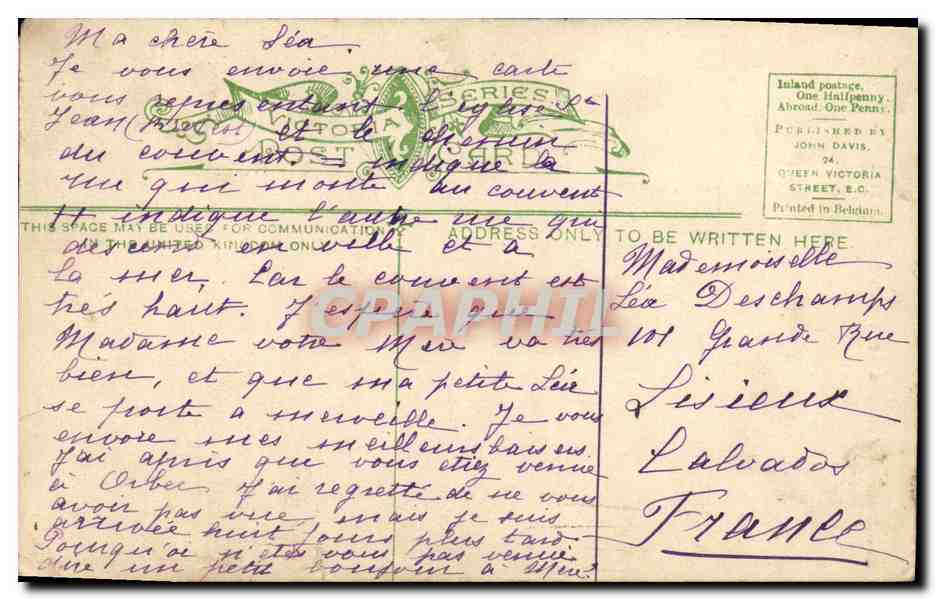 Ma chère Léa.
Je vous envoie une carte
vous représentant l'église St
Jean et le chemin
du couvent. — indique la
rue qui monte au couvent
++ indique l'autre rue qui
descend en ville et a
la mer. Car le couvent est
très haut. J'espère que
Madame votre Mère va très
bien, et que ma petite Léa
se porte a merveille. Je vous
envoie mes meilleurs baisers
J'ai apris que vous étiez venue
à Orbec J'ai regretté de ne vous
avoir pas vue, mais je suis
arrivée huit jours plus tard
Pourquoi n'êtes vous pas venue
dire un petit bonjour à Mère?
SERIES
VICTORIA
POST CARD
Inland postage,
One Halfpenny.
Abroad, One Penny.
PUBLISHED BY
JOHN DAVIS,
24,
QUEEN VICTORIA
STREET, E.C.
Printed in Belgium.
THIS SPACE MAY BE USED FOR COMMUNICATION
IN THE UNITED KINGDOM ONLY
ADDRESS ONLY TO BE WRITTEN HERE.
Mademoiselle
Léa Deschamps
101 Grande Rue
Lisieux
Calvados
France
CPAPHIL